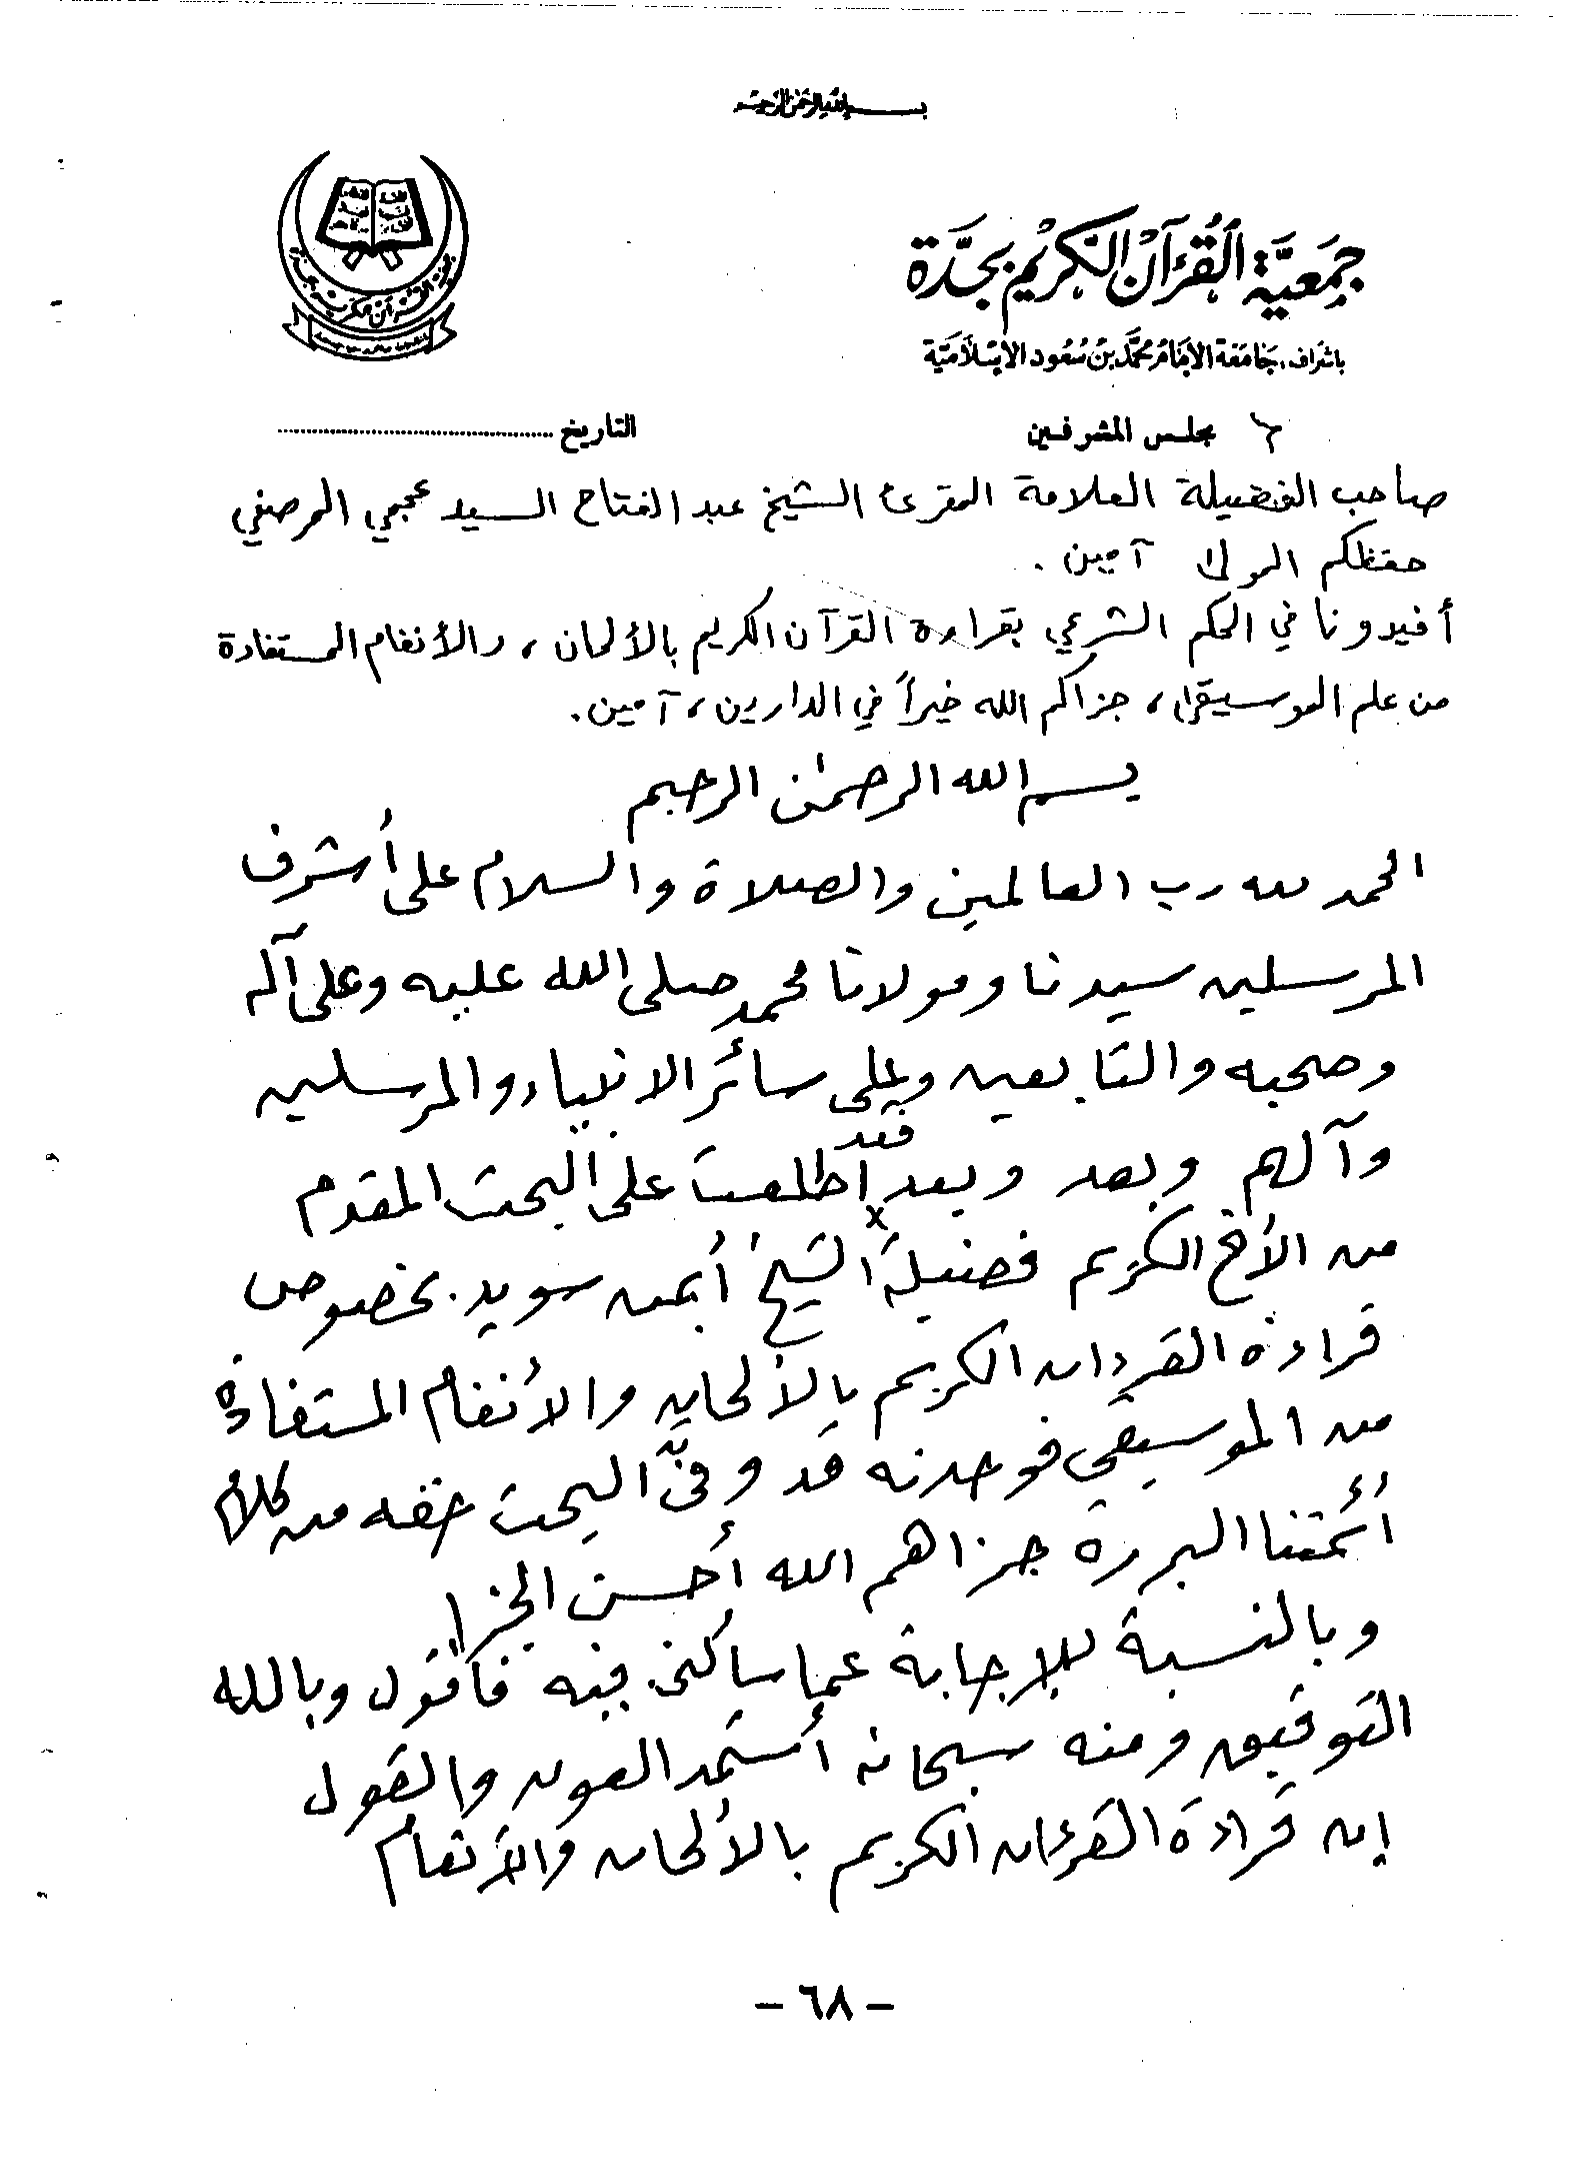 بسم الله الرحمن الرحيم
جمعية القرآن الكريم بجدة
باشراف، جامعة الإمام محمد بن سعود الإسلامية
مجلس المشرفين
التاريخ
صاحب الفضيلة العلامة المقرئ الشيخ عبد الفتاح السيد عجمي المرصفي
حفظكم المولى آمين .
أفيدونا في الحكم الشرعي بقراءة القرآن الكريم بالألحان ، والأنغام المستفادة
من علم الموسيقى ، جزاكم الله خيراً في الدارين ، آمين .
بسم الله الرحمن الرحيم
الحمد لله رب العالمين والصلاة والسلام على أشرف
المرسلين سيدنا ومولانا محمد صلى الله عليه وعلى آله
وصحبه والتابعين وعلى سائر الانبياء والمرسلين
وآلهم وبعد وبعد فقد اطلعت على البحث المقدم
من الأخ الكريم فضيلة الشيخ أيمن سويد. بخصوص
قراءة القرءان الكريم بالألحان والأنغام المستفادة
من الموسيقى فوجدته قد وفّى البحث حقه من كلام
أئمتنا البررة جزاهم الله أحسن الجزا
وبالنسبة للإجابة عما سألني فيه فأقول وبالله
التوفيق ومنه سبحانه أستمد العون والقول
إن قراءة القرءان الكريم بالألحان والأنغام
- ٦٨ -